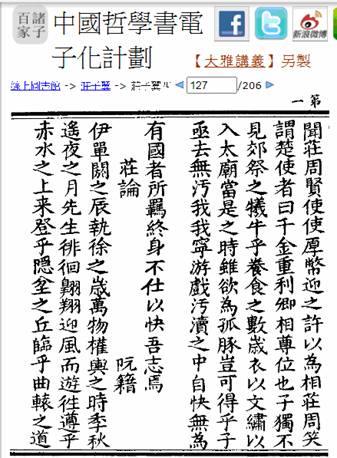 諸子百家
中國哲學書電子化計劃
新浪微博
【大雅講義】另製
線上圖書館 -> 莊子翼 -> 莊子翼八 127 /206
第一
聞莊周賢使使厚幣迎之許以為相莊周笑
謂楚使者曰千金重利卿相尊位也子獨不
見郊祭之犧牛乎養食之數歲衣以文繡以
入太廟當是之時雖欲為孤豚豈可得乎子
亟去無汚我我寧游戲汚瀆之中自快無為
有國者所羈終身不仕以快吾志焉
莊論 阮籍
伊單閼之辰執徐之歲萬物權輿之時季秋
遙夜之月先生徘徊翱翔迎風而遊徃遵乎
赤水之上来登乎隱坌之丘臨乎曲轅之道